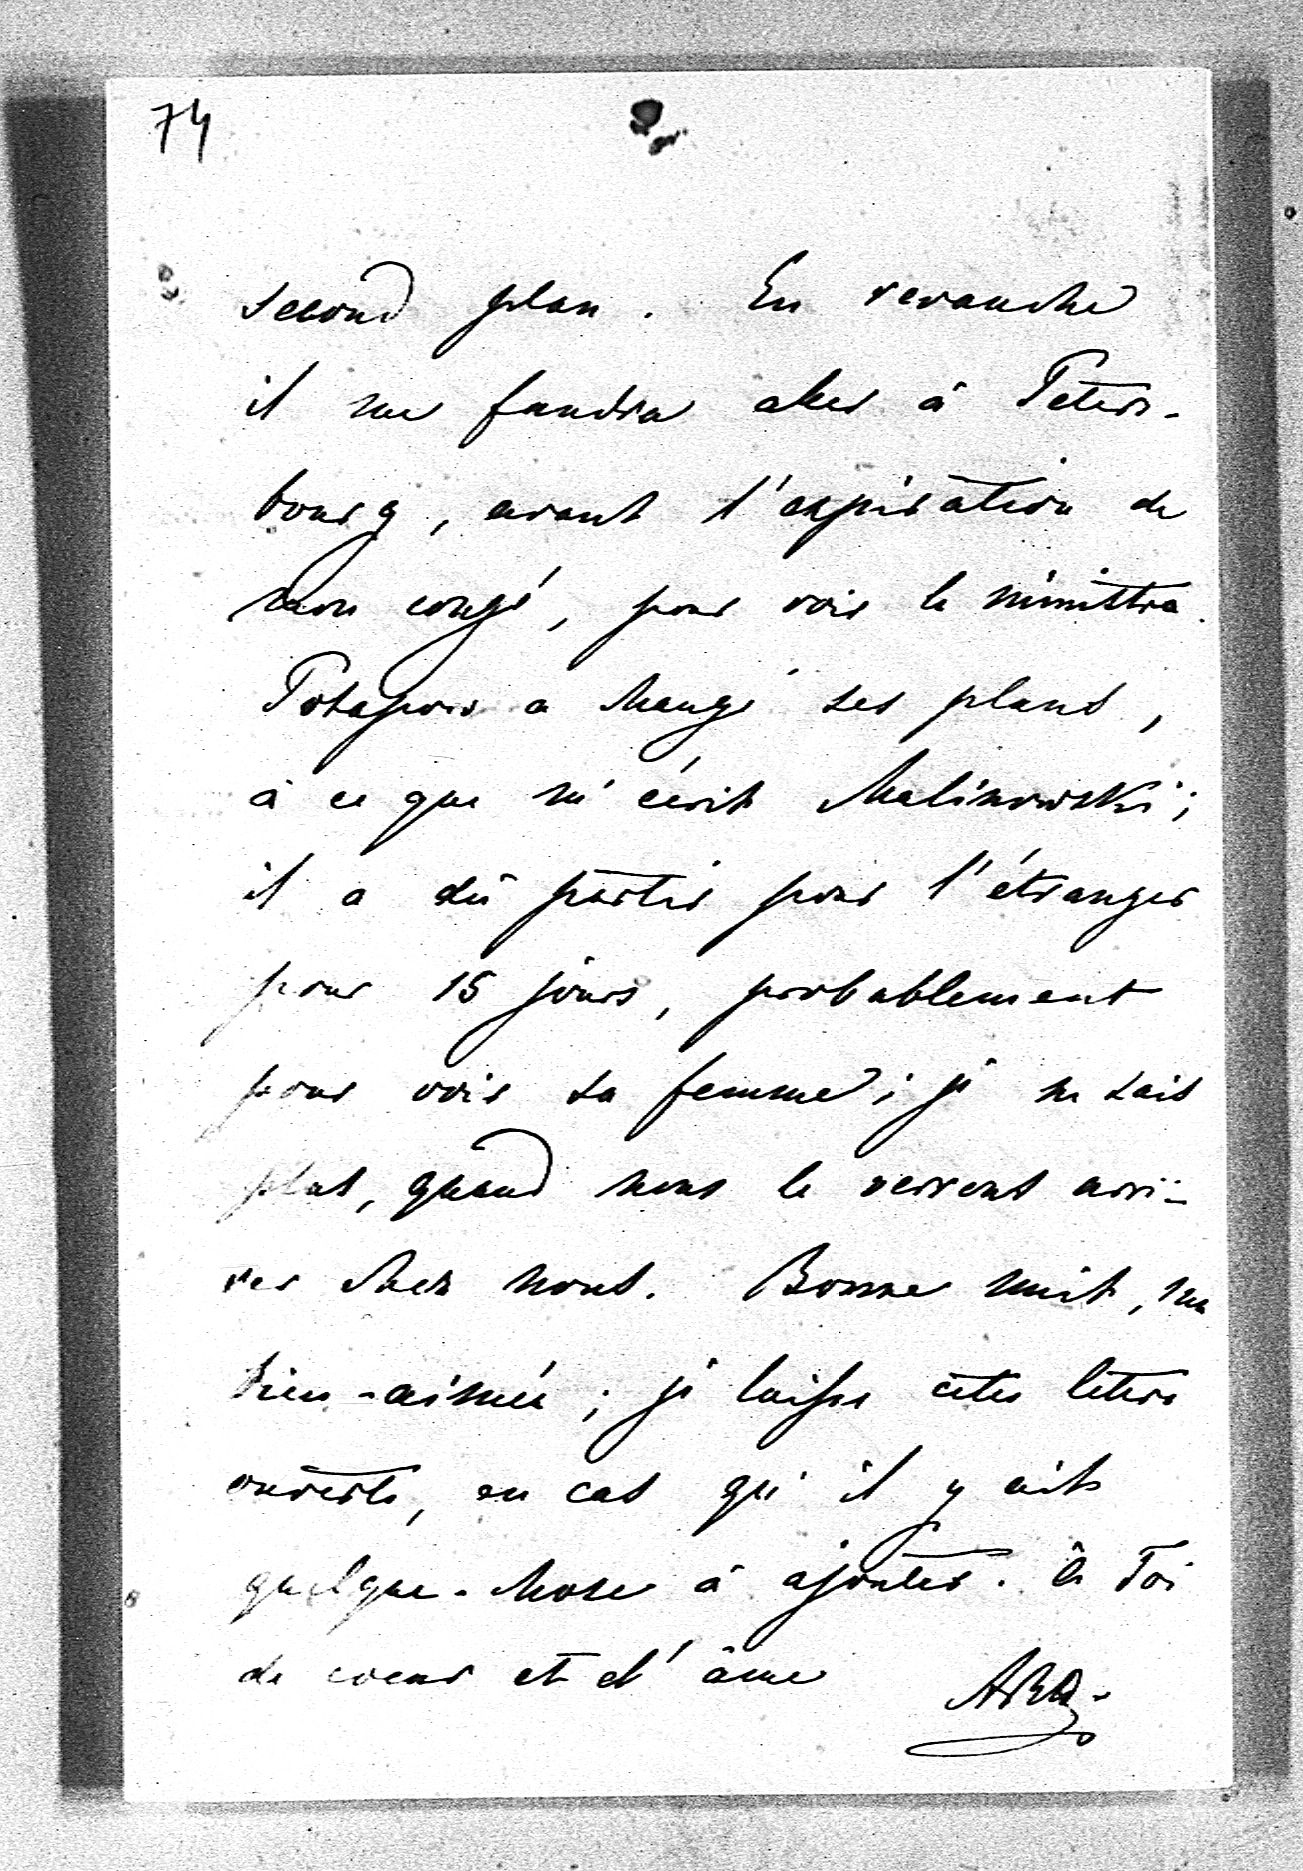 74
second plan. En revanche
il me faudra aller à Péters-
bourg, avant l'expiration de
mon congé, pour voir le ministre.
Potapow a changé ses plans,
à ce que m'écrit Malinowski;
il a dû partir pour l'étranger
pour 15 jours, probablement
pour voir sa femme; je ne sais
plus, quand nous le verrons arri-
ver chez nous. Bonne nuit, ma
bien-aimée; je laisse cette lettre
ouverte, en cas qu'il y ait
quelque-chose à ajouter. à Toi
de coeur et d'âme